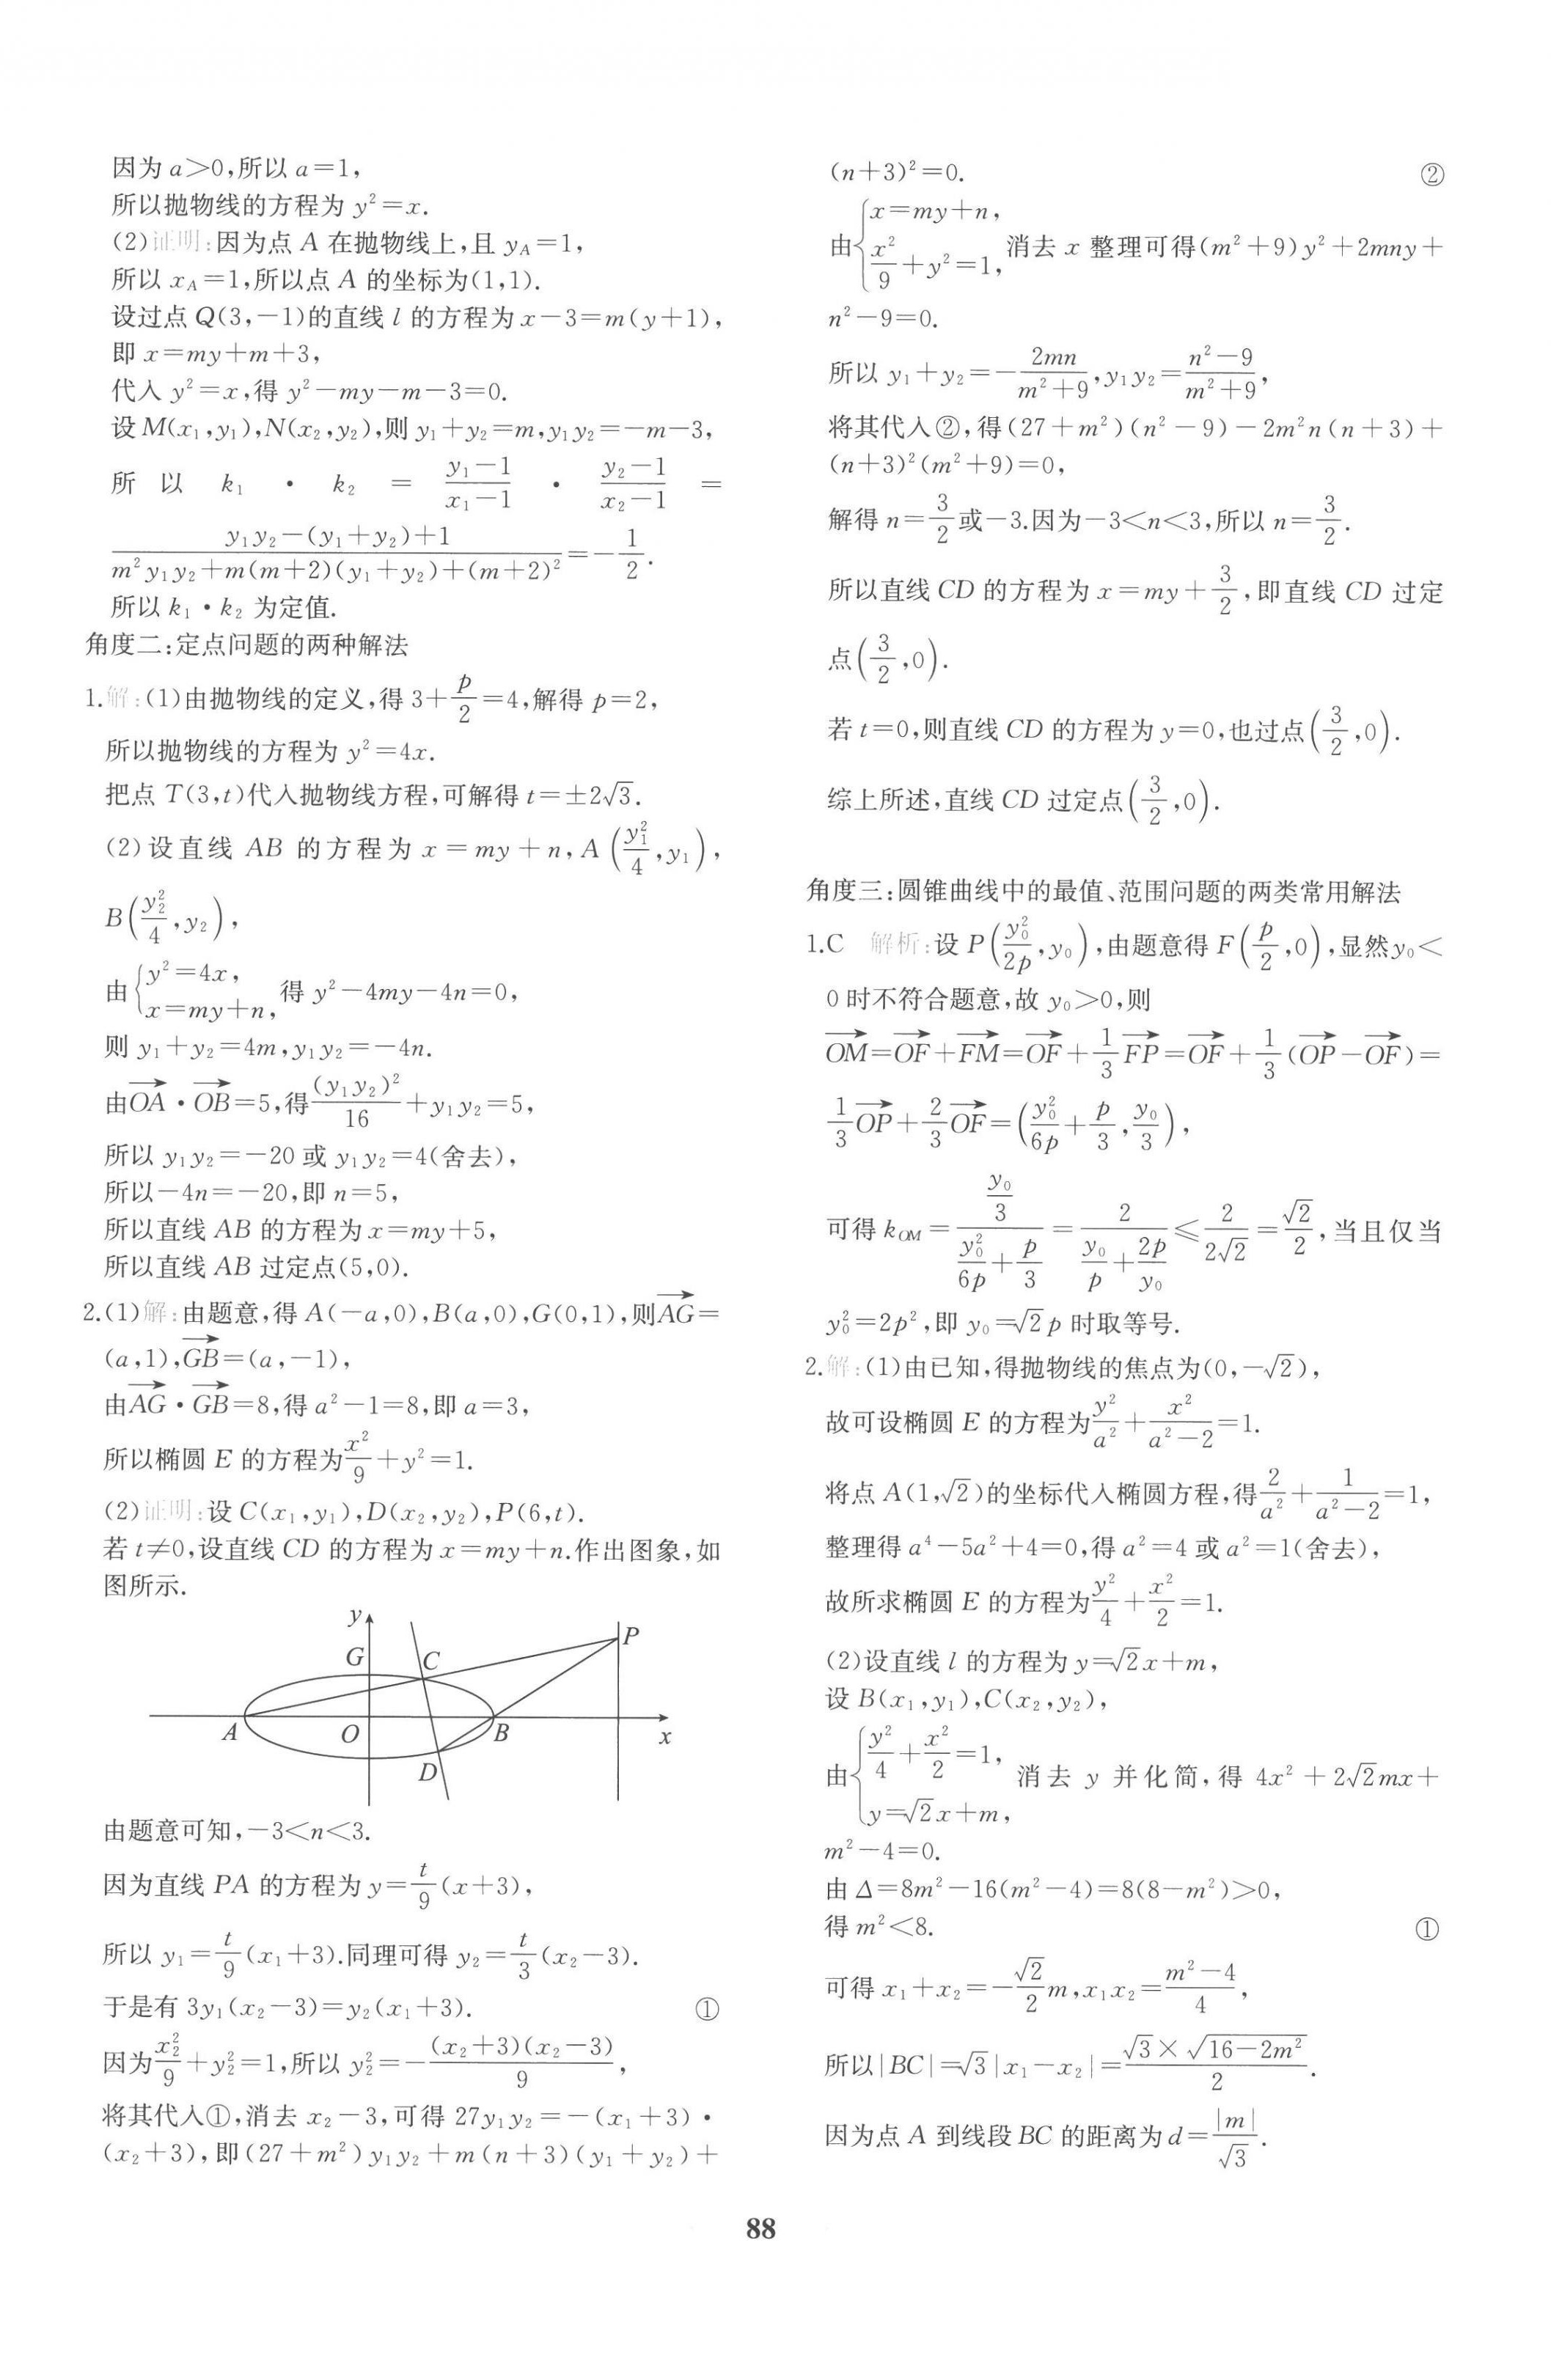 因为 a>0,所以 a=1,
所以抛物线的方程为 y²=x.
(2)证明:因为点 A 在抛物线上,且 y_A=1,
所以 x_A=1,所以点 A 的坐标为(1,1).
设过点 Q(3,-1)的直线 l 的方程为 x-3=m(y+1),
即 x=my+m+3,
代入 y²=x,得 y²-my-m-3=0.
设 M(x₁,y₁),N(x₂,y₂),则 y₁+y₂=m,y₁y₂=-m-3,
所 以 k₁ · k₂ = (y₁-1)/(x₁-1) · (y₂-1)/(x₂-1) =
(y₁y₂-(y₁+y₂)+1)/(m²y₁y₂+m(m+2)(y₁+y₂)+(m+2)²)=-1/2.
所以 k₁·k₂ 为定值.
角度二:定点问题的两种解法
1.解:(1)由抛物线的定义,得 3+p/2=4,解得 p=2,
所以抛物线的方程为 y²=4x.
把点 T(3,t)代入抛物线方程,可解得 t=±2√3.
(2)设直线 AB 的方程为 x=my+n,A(y₁²/4,y₁),
B(y₂²/4,y₂),
由{y²=4x, x=my+n, 得 y²-4my-4n=0,
则 y₁+y₂=4m,y₁y₂=-4n.
由OA→·OB→=5,得(y₁y₂)²/16+y₁y₂=5,
所以 y₁y₂=-20 或 y₁y₂=4(舍去),
所以-4n=-20,即 n=5,
所以直线 AB 的方程为 x=my+5,
所以直线 AB 过定点(5,0).
2.(1)解:由题意,得 A(-a,0),B(a,0),G(0,1),则AG→=
(a,1),GB→=(a,-1),
由AG→·GB→=8,得 a²-1=8,即 a=3,
所以椭圆 E 的方程为x²/9+y²=1.
(2)证明:设 C(x₁,y₁),D(x₂,y₂),P(6,t).
若 t≠0,设直线 CD 的方程为 x=my+n.作出图象,如
图所示.
y
P
G
C
A
O
B
x
D
由题意可知,-3<n<3.
因为直线 PA 的方程为 y=t/9(x+3),
所以 y₁=t/9(x₁+3).同理可得 y₂=t/3(x₂-3).
于是有 3y₁(x₂-3)=y₂(x₁+3). ①
因为x₂²/9+y₂²=1,所以 y₂²=-(x₂+3)(x₂-3)/9,
将其代入①,消去 x₂-3,可得 27y₁y₂=-(x₁+3)·
(x₂+3),即(27+m²)y₁y₂+m(n+3)(y₁+y₂)+
(n+3)²=0. ②
由{x=my+n, x²/9+y²=1, 消去 x 整理可得(m²+9)y²+2mny+
n²-9=0.
所以 y₁+y₂=-2mn/(m²+9),y₁y₂=(n²-9)/(m²+9),
将其代入②,得(27+m²)(n²-9)-2m²n(n+3)+
(n+3)²(m²+9)=0,
解得 n=3/2或-3.因为-3<n<3,所以 n=3/2.
所以直线 CD 的方程为 x=my+3/2,即直线 CD 过定
点(3/2,0).
若 t=0,则直线 CD 的方程为 y=0,也过点(3/2,0).
综上所述,直线 CD 过定点(3/2,0).
角度三:圆锥曲线中的最值、范围问题的两类常用解法
1.C 解析:设 P(y₀²/2p,y₀),由题意得 F(p/2,0),显然y₀<
0 时不符合题意,故 y₀>0,则
OM→=OF→+FM→=OF→+1/3FP→=OF→+1/3(OP→-OF→)=
1/3OP→+2/3OF→=(y₀²/6p+p/3,y₀/3),
可得 k_OM=(y₀/3)/(y₀²/6p+p/3)=2/(y₀/p+2p/y₀)≤2/(2√2)=√2/2,当且仅当
y₀²=2p²,即 y₀=√2p 时取等号.
2.解:(1)由已知,得抛物线的焦点为(0,-√2),
故可设椭圆 E 的方程为y²/a²+x²/(a²-2)=1.
将点 A(1,√2)的坐标代入椭圆方程,得2/a²+1/(a²-2)=1,
整理得 a⁴-5a²+4=0,得 a²=4 或 a²=1(舍去),
故所求椭圆 E 的方程为y²/4+x²/2=1.
(2)设直线 l 的方程为 y=√2x+m,
设 B(x₁,y₁),C(x₂,y₂),
由{y²/4+x²/2=1, y=√2x+m, 消去 y 并化简,得 4x²+2√2mx+
m²-4=0.
由 Δ=8m²-16(m²-4)=8(8-m²)>0,
得 m²<8. ①
可得 x₁+x₂=-√2/2m,x₁x₂=(m²-4)/4,
所以|BC|=√3|x₁-x₂|=√3×√(16-2m²)/2.
因为点 A 到线段 BC 的距离为 d=|m|/√3.
88